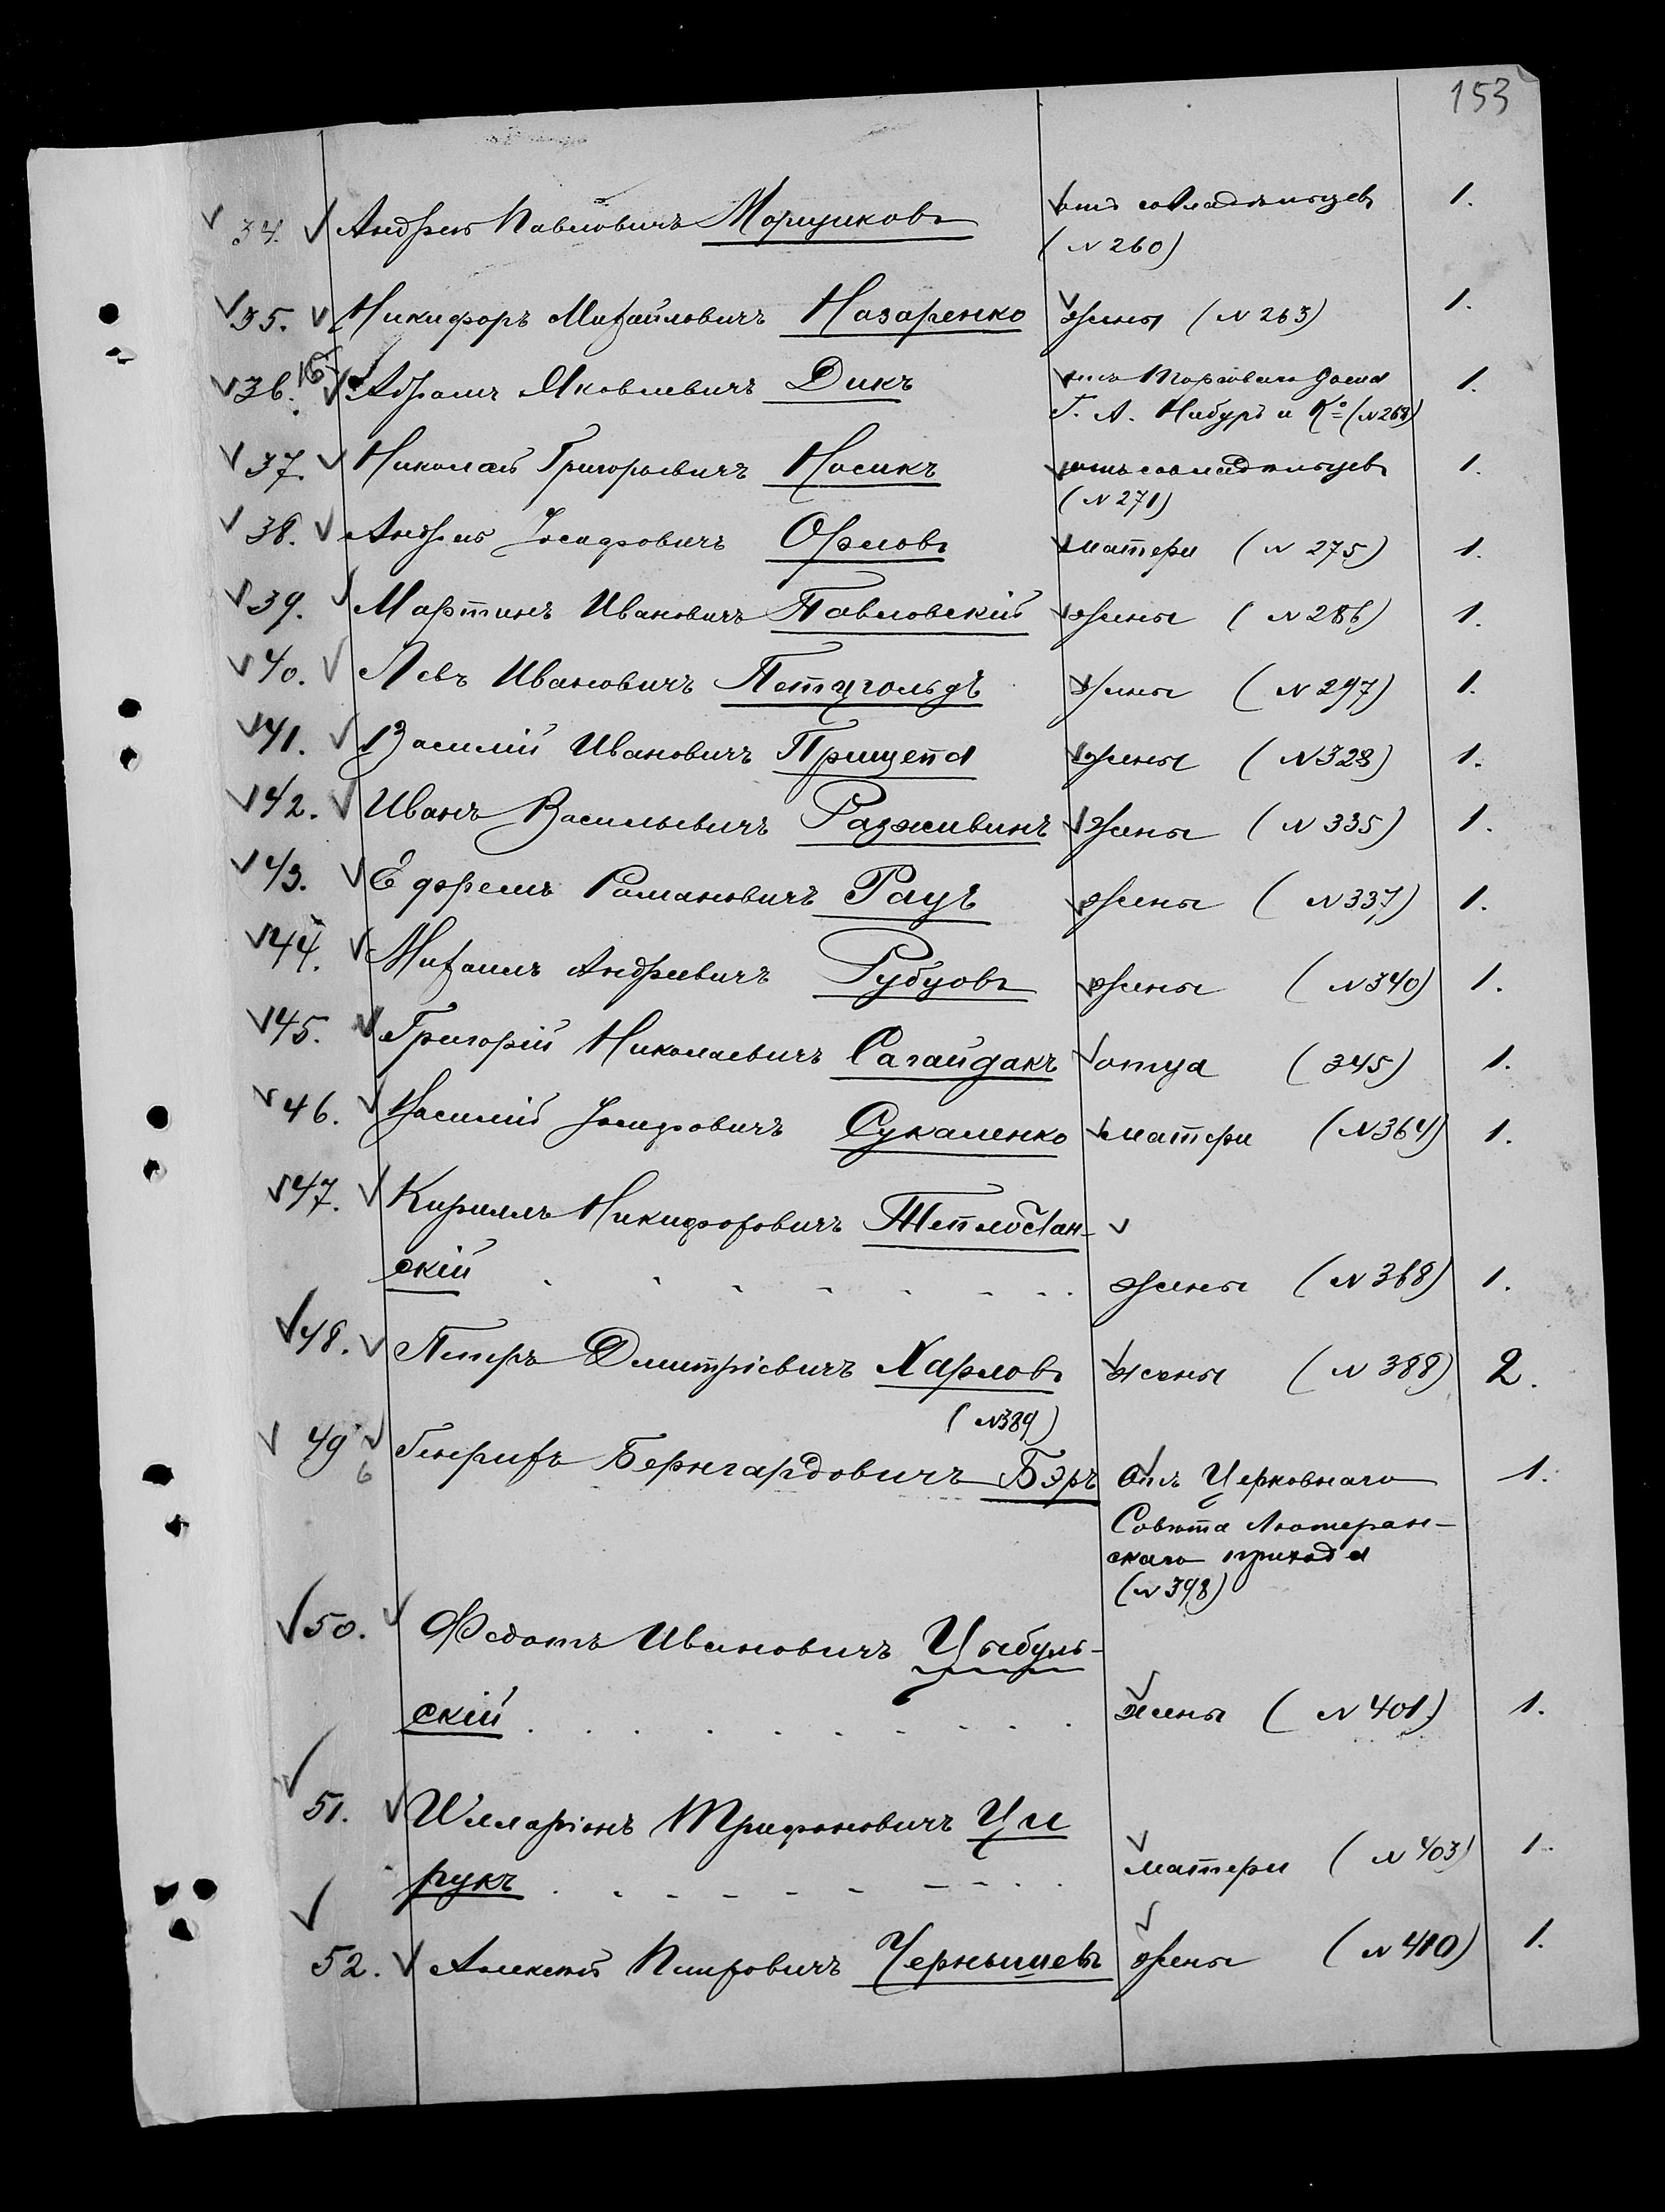 153
34. Андрей Павловичъ Морщиковъ отъ совладѣльцевъ 1.
(N 260)
35. Никифоръ Михайловичъ Назаренко жены (N 263) 1.
36. Абрамъ Яковлевичъ Дикъ отъ Торговаго Дома 1.
Г. А. Нибуръ и К° (N 268)
37. Николай Григорьевичъ Носикъ отъ совладѣльцевъ 1.
(N 271)
38. Андрей Іосифовичъ Орловъ матери (N 275) 1.
39. Мартинъ Ивановичъ Павловскій жены (N 286) 1.
40. Левъ Ивановичъ Петцгольдъ жены (N 297) 1.
41. Василій Ивановичъ Прищепа жены (N 328) 1.
42. Иванъ Васильевичъ Разживинъ жены (N 335) 1.
43. Ефремъ Романовичъ Рауъ жены (N 337) 1.
44. Михаилъ Андреевичъ Рубцовъ жены (N 340) 1.
45. Григорій Николаевичъ Сагайдакъ отца (345) 1.
46. Василій Іосифовичъ Сукаленко матери (N 364) 1.
47. Кириллъ Никифоровичъ Теплостан-
скій . . . . . . . жены (N 368) 1.
48. Петръ Дмитріевичъ Харловъ жены (N 388) 2.
(N 389)
49 Генрихъ Бернгардовичъ Бэръ Отъ Церковнаго 1.
6
Совѣта Лютеран-
скаго прихода
(N 398)
50. Федотъ Ивановичъ Цыбуль-
скій . . . . . . . . . . жены (N 401) 1.
51. Илларіонъ Трифоновичъ Ци
рукъ . . . . . . . . . матери (N 403) 1.
52. Алексѣй Петровичъ Чернышевъ жены (N 410) 1.